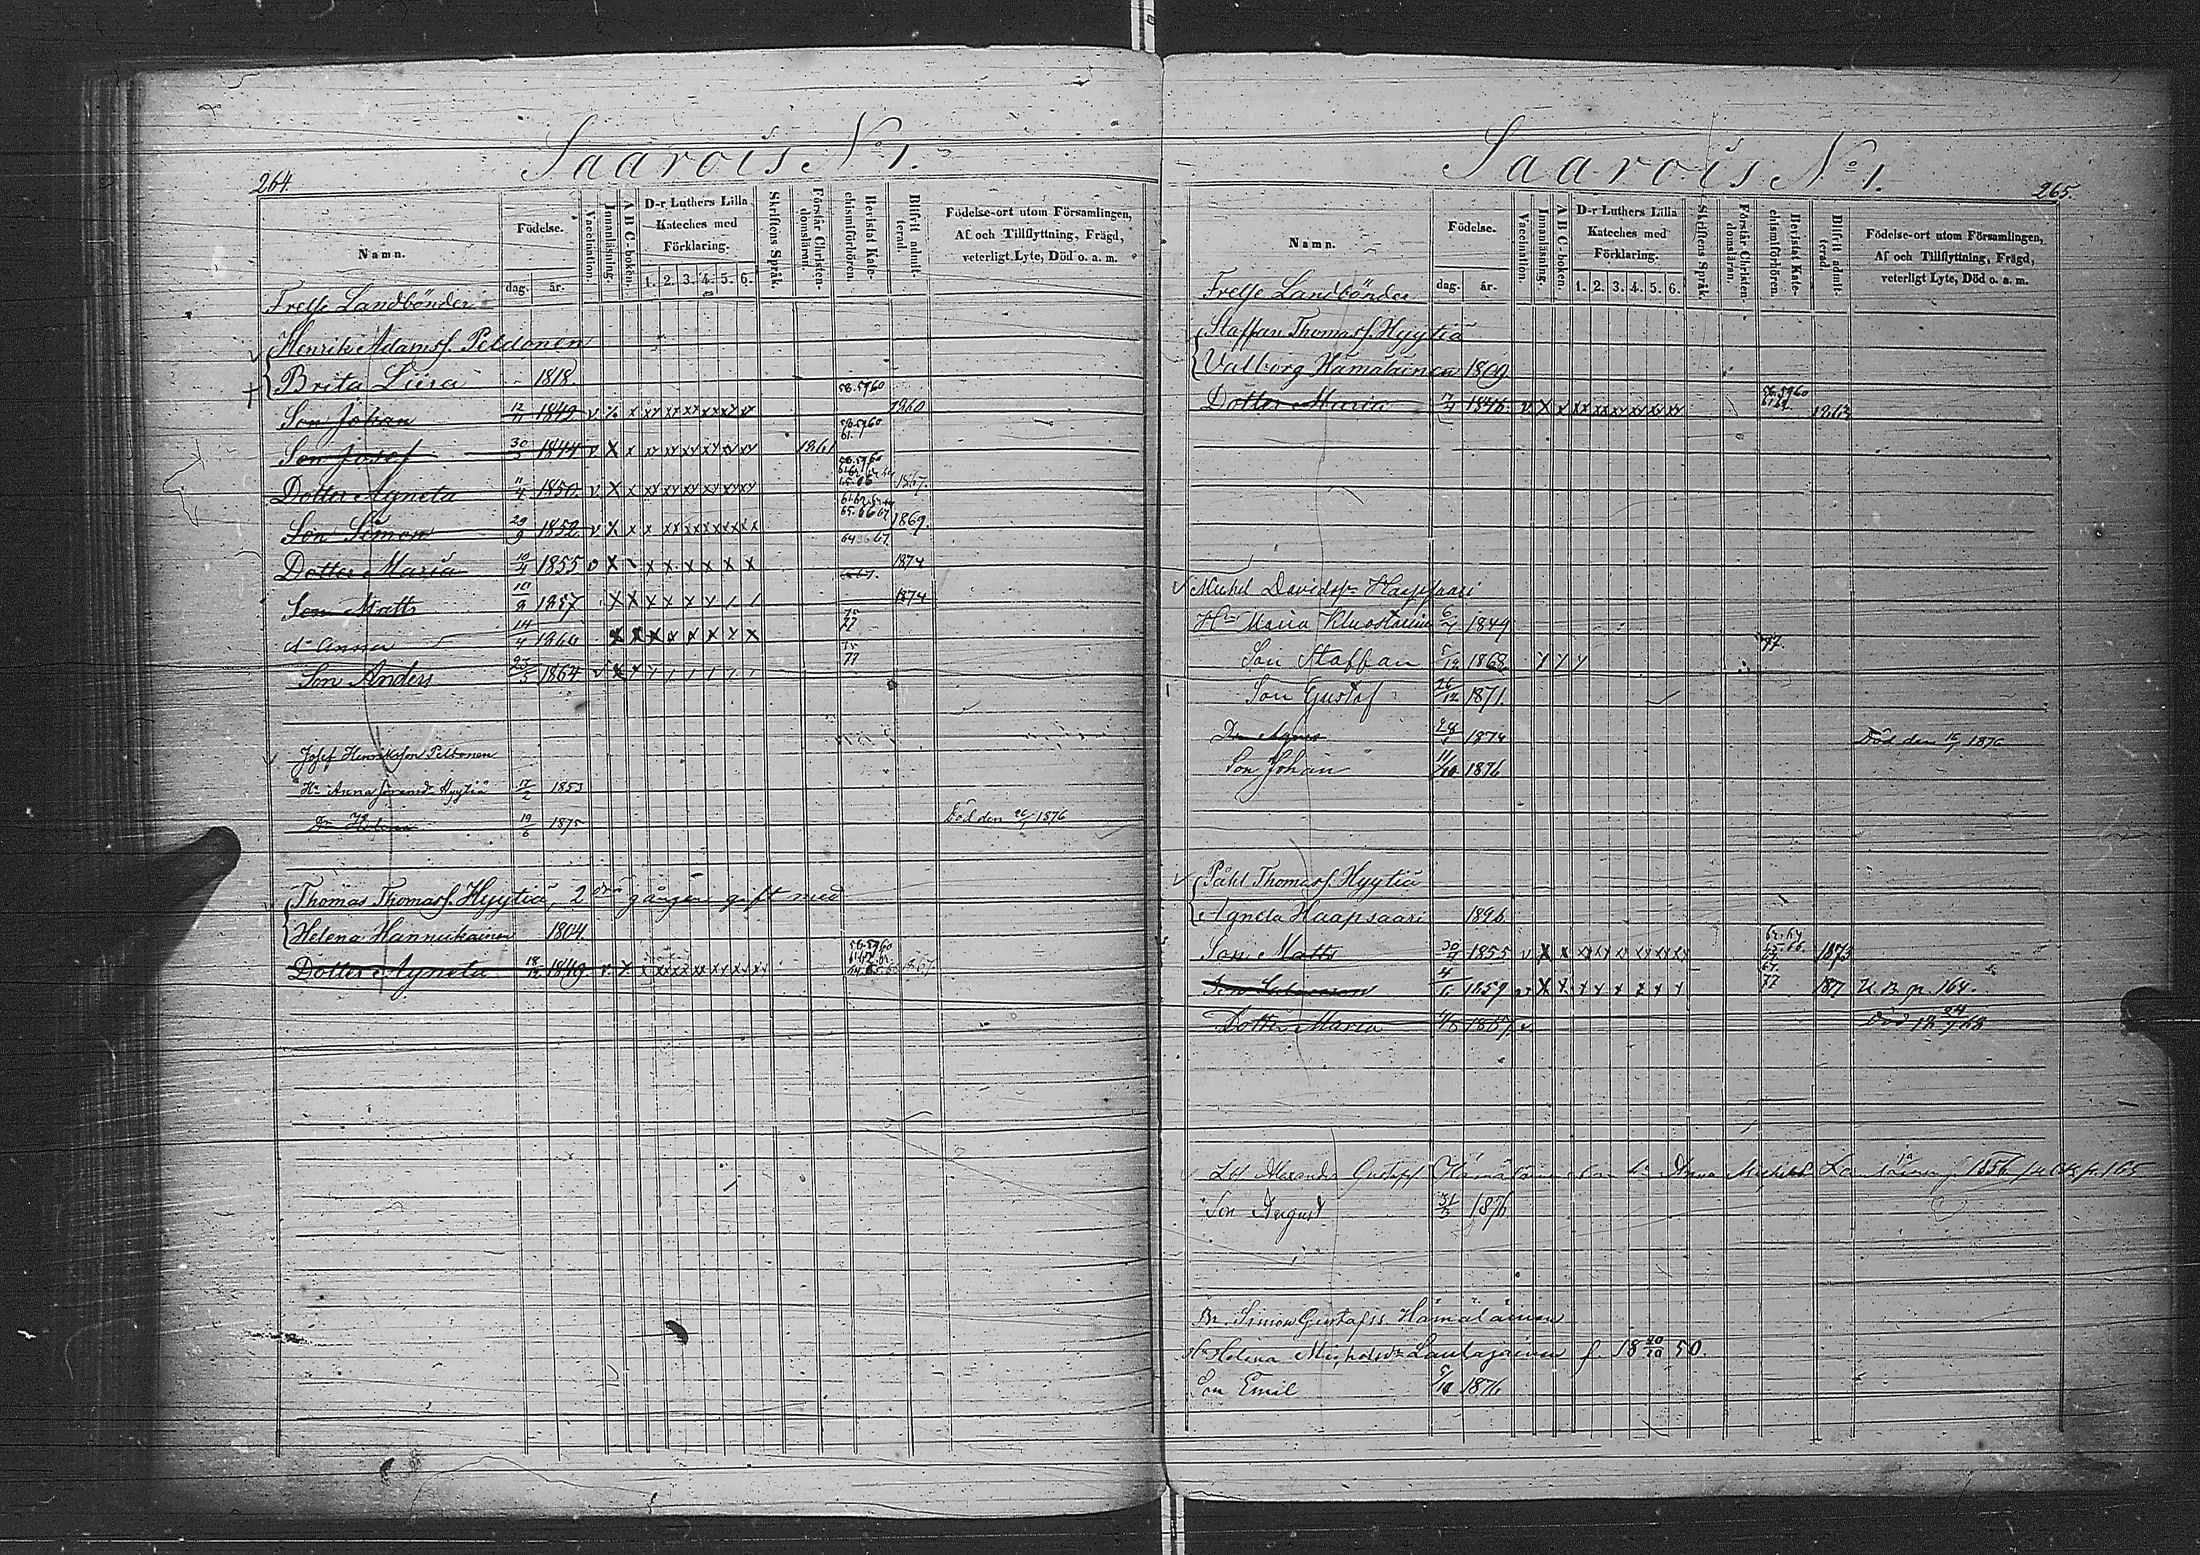 264.
Saarois No 1.
Namn.
Födelse.
dag. år.
Vaccination.
Innanläsning.
A B C-boken.
D-r Luthers Lilla
Kateches med
Förklaring.
1. 2. 3. 4. 5. 6.
Skriftens Språk.
Förstår Christen-
domsläran.
Bevistat Kate-
chismiförhören.
Blifvit admit-
terad.
Födelse-ort utom Församlingen,
Af och Tillflyttning, Frägd,
veterligt Lyte, Död o. a. m.
Frelse Landbönder
Henrik Adamsf. Peldonen
Brita Liisa 1818.
Son Johan 12/11 1842 v x xx xx xx xx xx 58.5960 1860
Son Josef 30/3 1844 v X x xx xx xx xx xx xx 1861 58.5960 61.
Dotter Agneta 11/4 1850. v X x xx xx xx xx xx xx 58.5960 1867.
Son Simon 29/9 1852 v X x x xx xx xx xx xx 1869.
Dotter Maria 10/4 1855 v X x x x x x x 6466 67. 1874
Son Matts 10/9 1857 X X x x x x 67. 1874
Dr Anna 14/4 1860 X X X x x x x X 75 77
Son Anders 25/3 1864 v 75 77
Josef Henriksson Peltonen
Hu Anna Göransd. Hyytiä 17/2 1853
Dr Helena 19/6 1875 Död den 26/ 1876
Thomas Thomasf. Hyytiä, 2 dra gången gift med
Helena Hannukainen 1804.
Dotter Agneta 18/12 1849 v X x xx xx xx xx xx xx 58.5960 1867
265.
Saarois No 1.
Namn.
Födelse.
dag. år.
Vaccination.
Innanläsning.
A B C-boken.
D-r Luthers Lilla
Kateches med
Förklaring.
1. 2. 3. 4. 5. 6.
Skriftens Språk.
Förstår Christen-
domsläran.
Bevistat Kate-
chismiförhören.
Blifvit admit-
terad.
Födelse-ort utom Församlingen,
Af och Tillflyttning, Frägd,
veterligt Lyte, Död o. a. m.
Frelse Landbönder
Staffan Thomasf. Hyytiä
Valborg Hämäläinen 1809
Dotter Maria 1846. v X x xx xx xx xx xx xx 58.5960 1863
Michel Davidsn Haapsaari
Hu Maria 6/ 1849
Son Staffan 5/12 1868 77.
Son Gustaf 26/12 1871.
Dr Agnes 1874 Död den 1876
Son Johan 11/10 1876
Påhl Thomasf. Hyytiä
Agneta Haapsaari 1826
Son Matts 30/9 1855 v X x xx xx x xx xx xx 1873
Son Salomon 4/ 1859 v X x x x x x x x 67. 77 187 U. B. p. 164.
Dotter Maria 1867 v. Död 1868
Alexander Gustafsf. Hämäläinen Anna 1856 p. 165
Son August 31/ 1876
Br. Simon Gustafss. Hämäläinen
Hu Helena Lautajainen f. 18 20/10 50.
Son Emil 5/10 1876